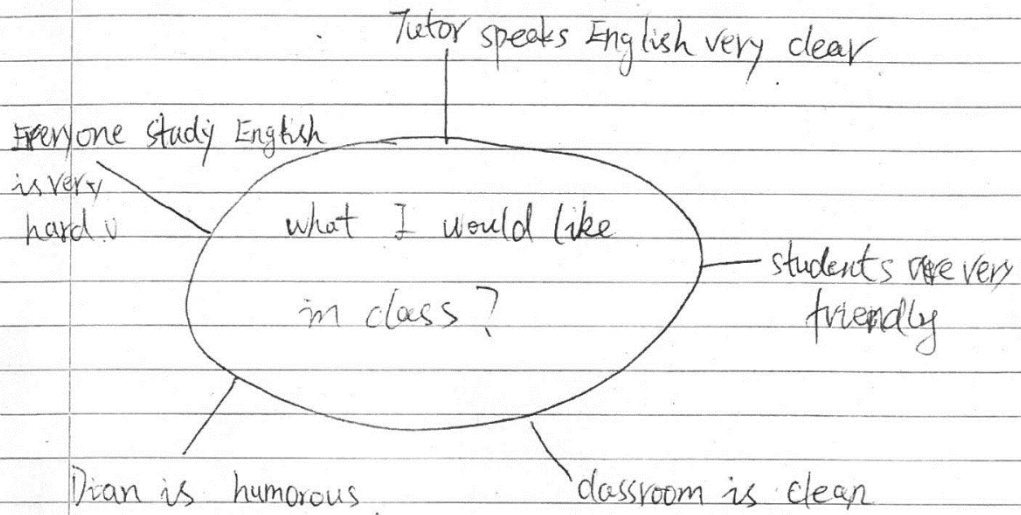 Tutor speaks English very clear
Everyone study English
is very
hard
what I would like
in class?
students are very
friendly
Dian is humorous
classroom is clean